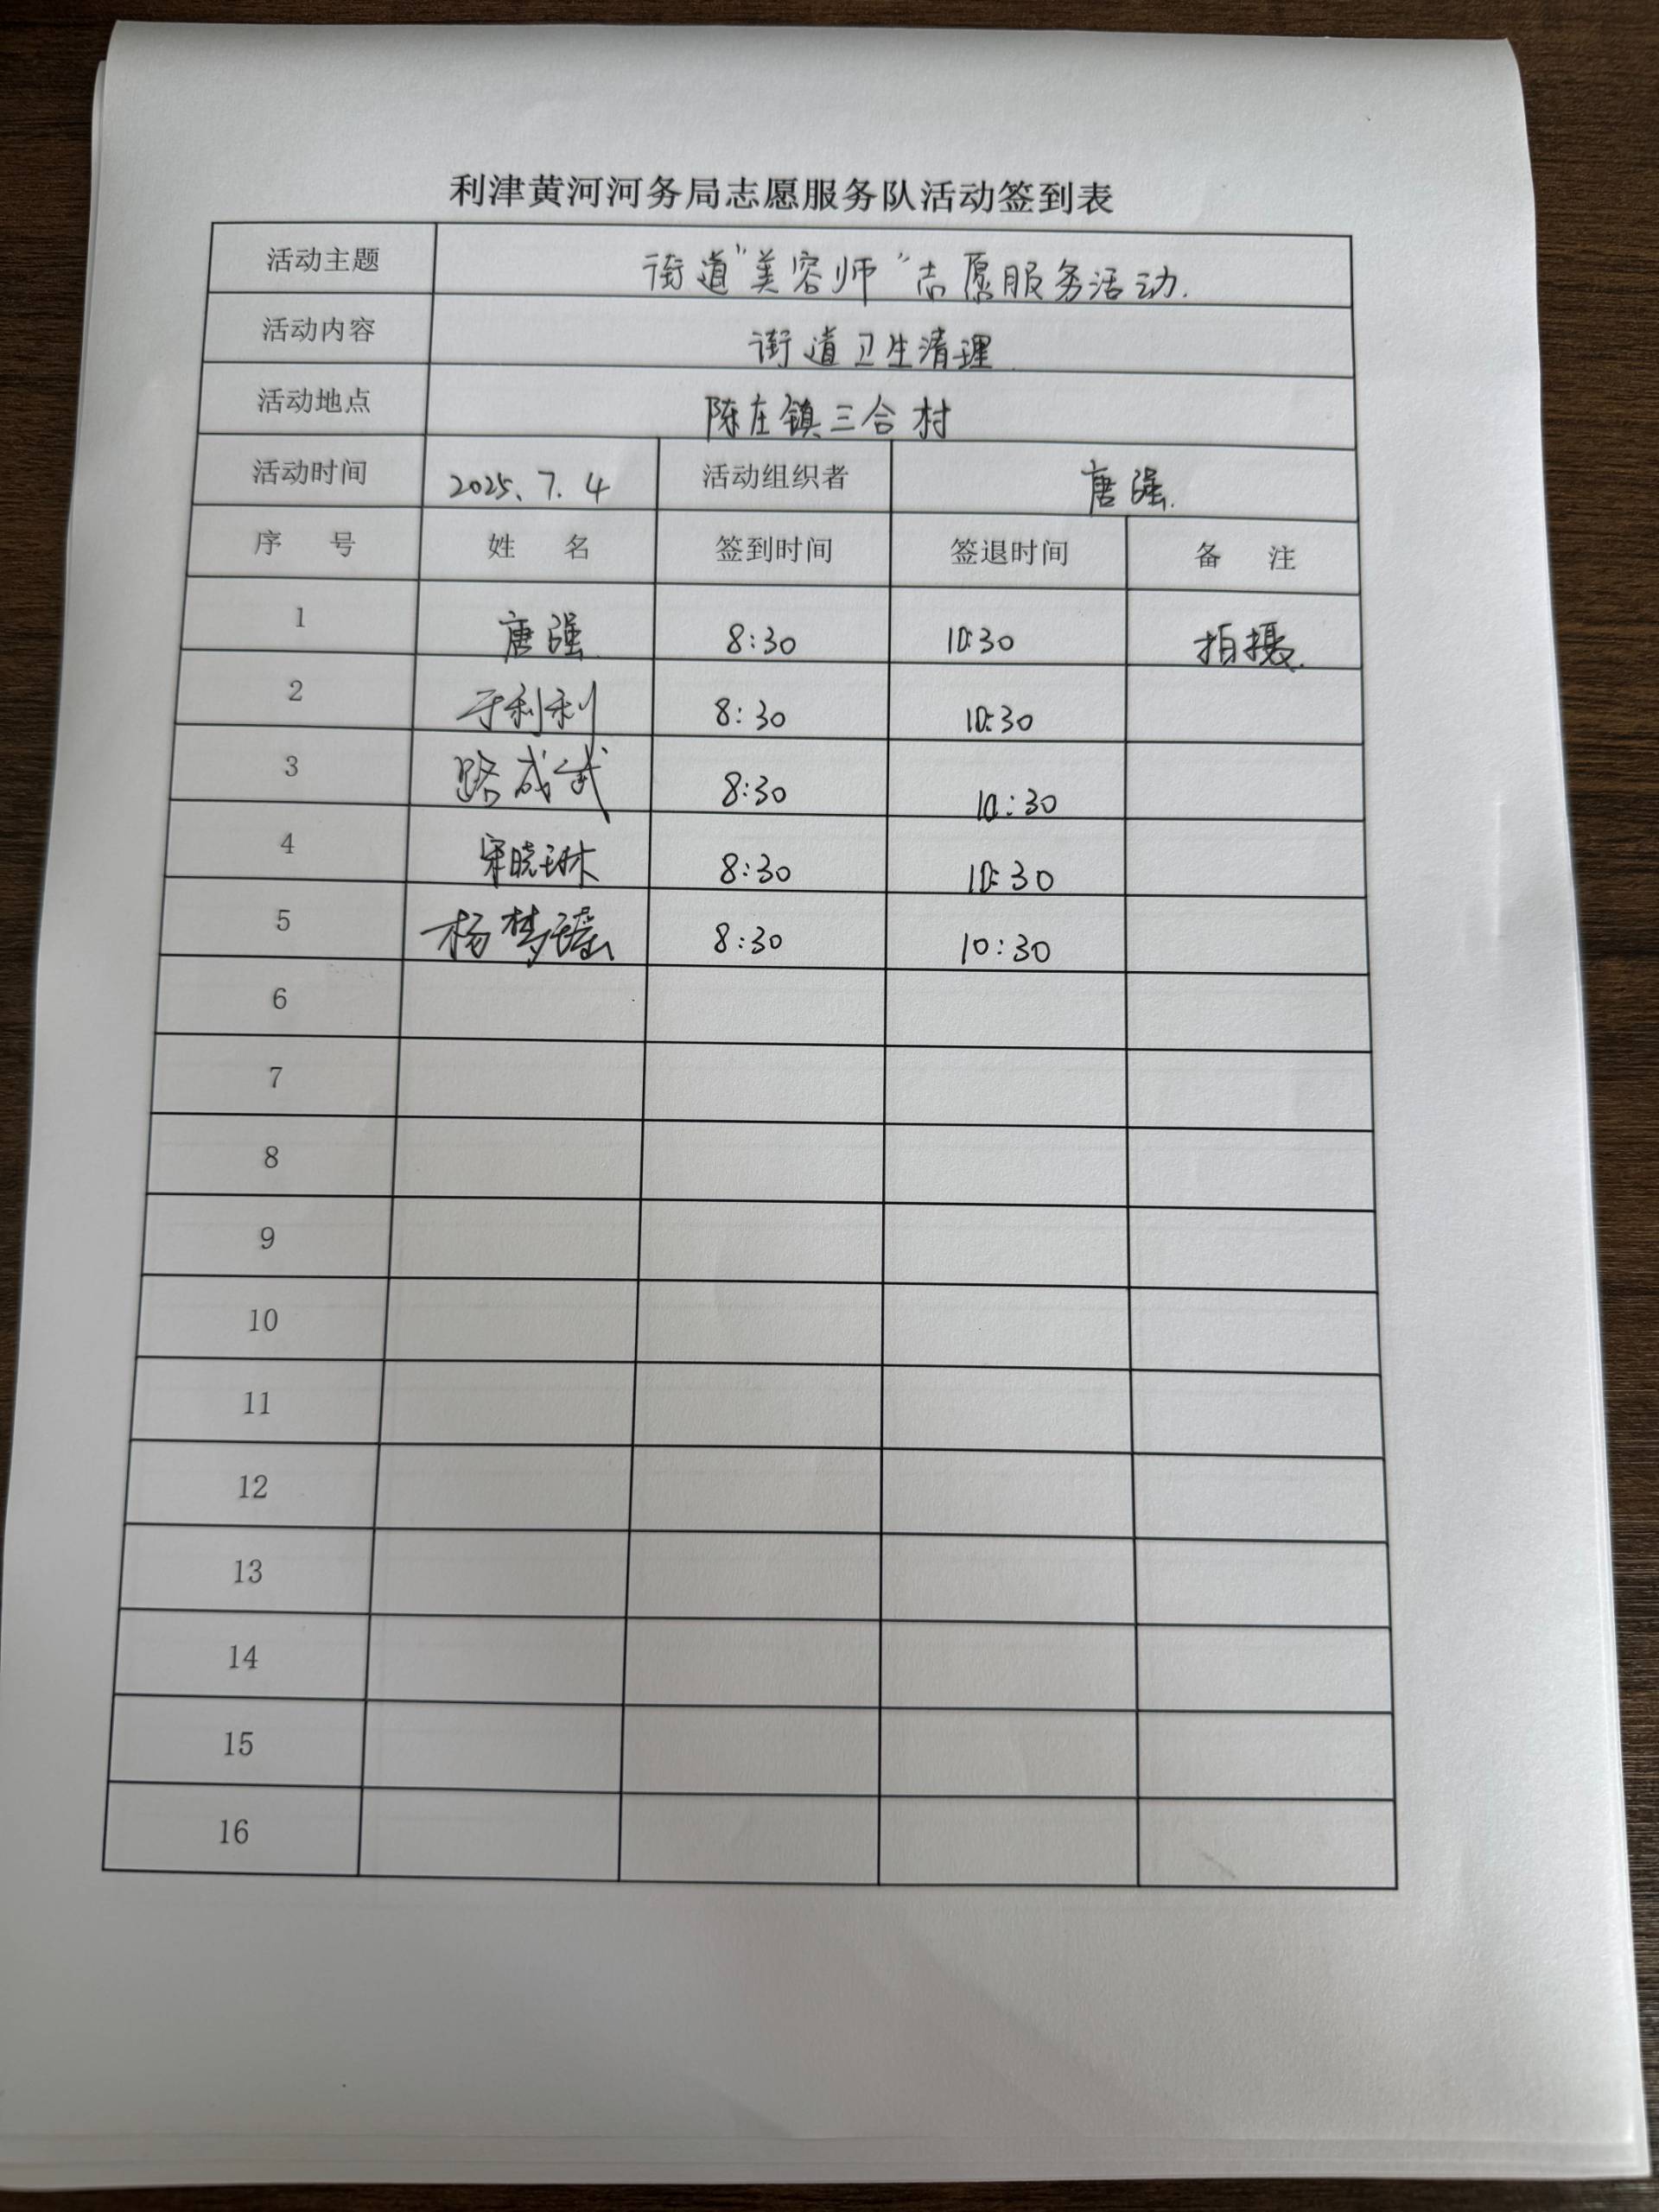 利津黄河河务局志愿服务队活动签到表
活动主题 街道"美容师"志愿服务活动.
活动内容 街道卫生清理
活动地点 陈庄镇三合村
活动时间 2025、7.4 活动组织者 唐强.
序 号 姓 名 签到时间 签退时间 备 注
1 唐强 8:30 10:30 拍摄.
2 于利利 8:30 10:30
3 路成武 8:30 10:30
4 宋晓琳 8:30 10:30
5 杨梦瑶 8:30 10:30
6
7
8
9
10
11
12
13
14
15
16